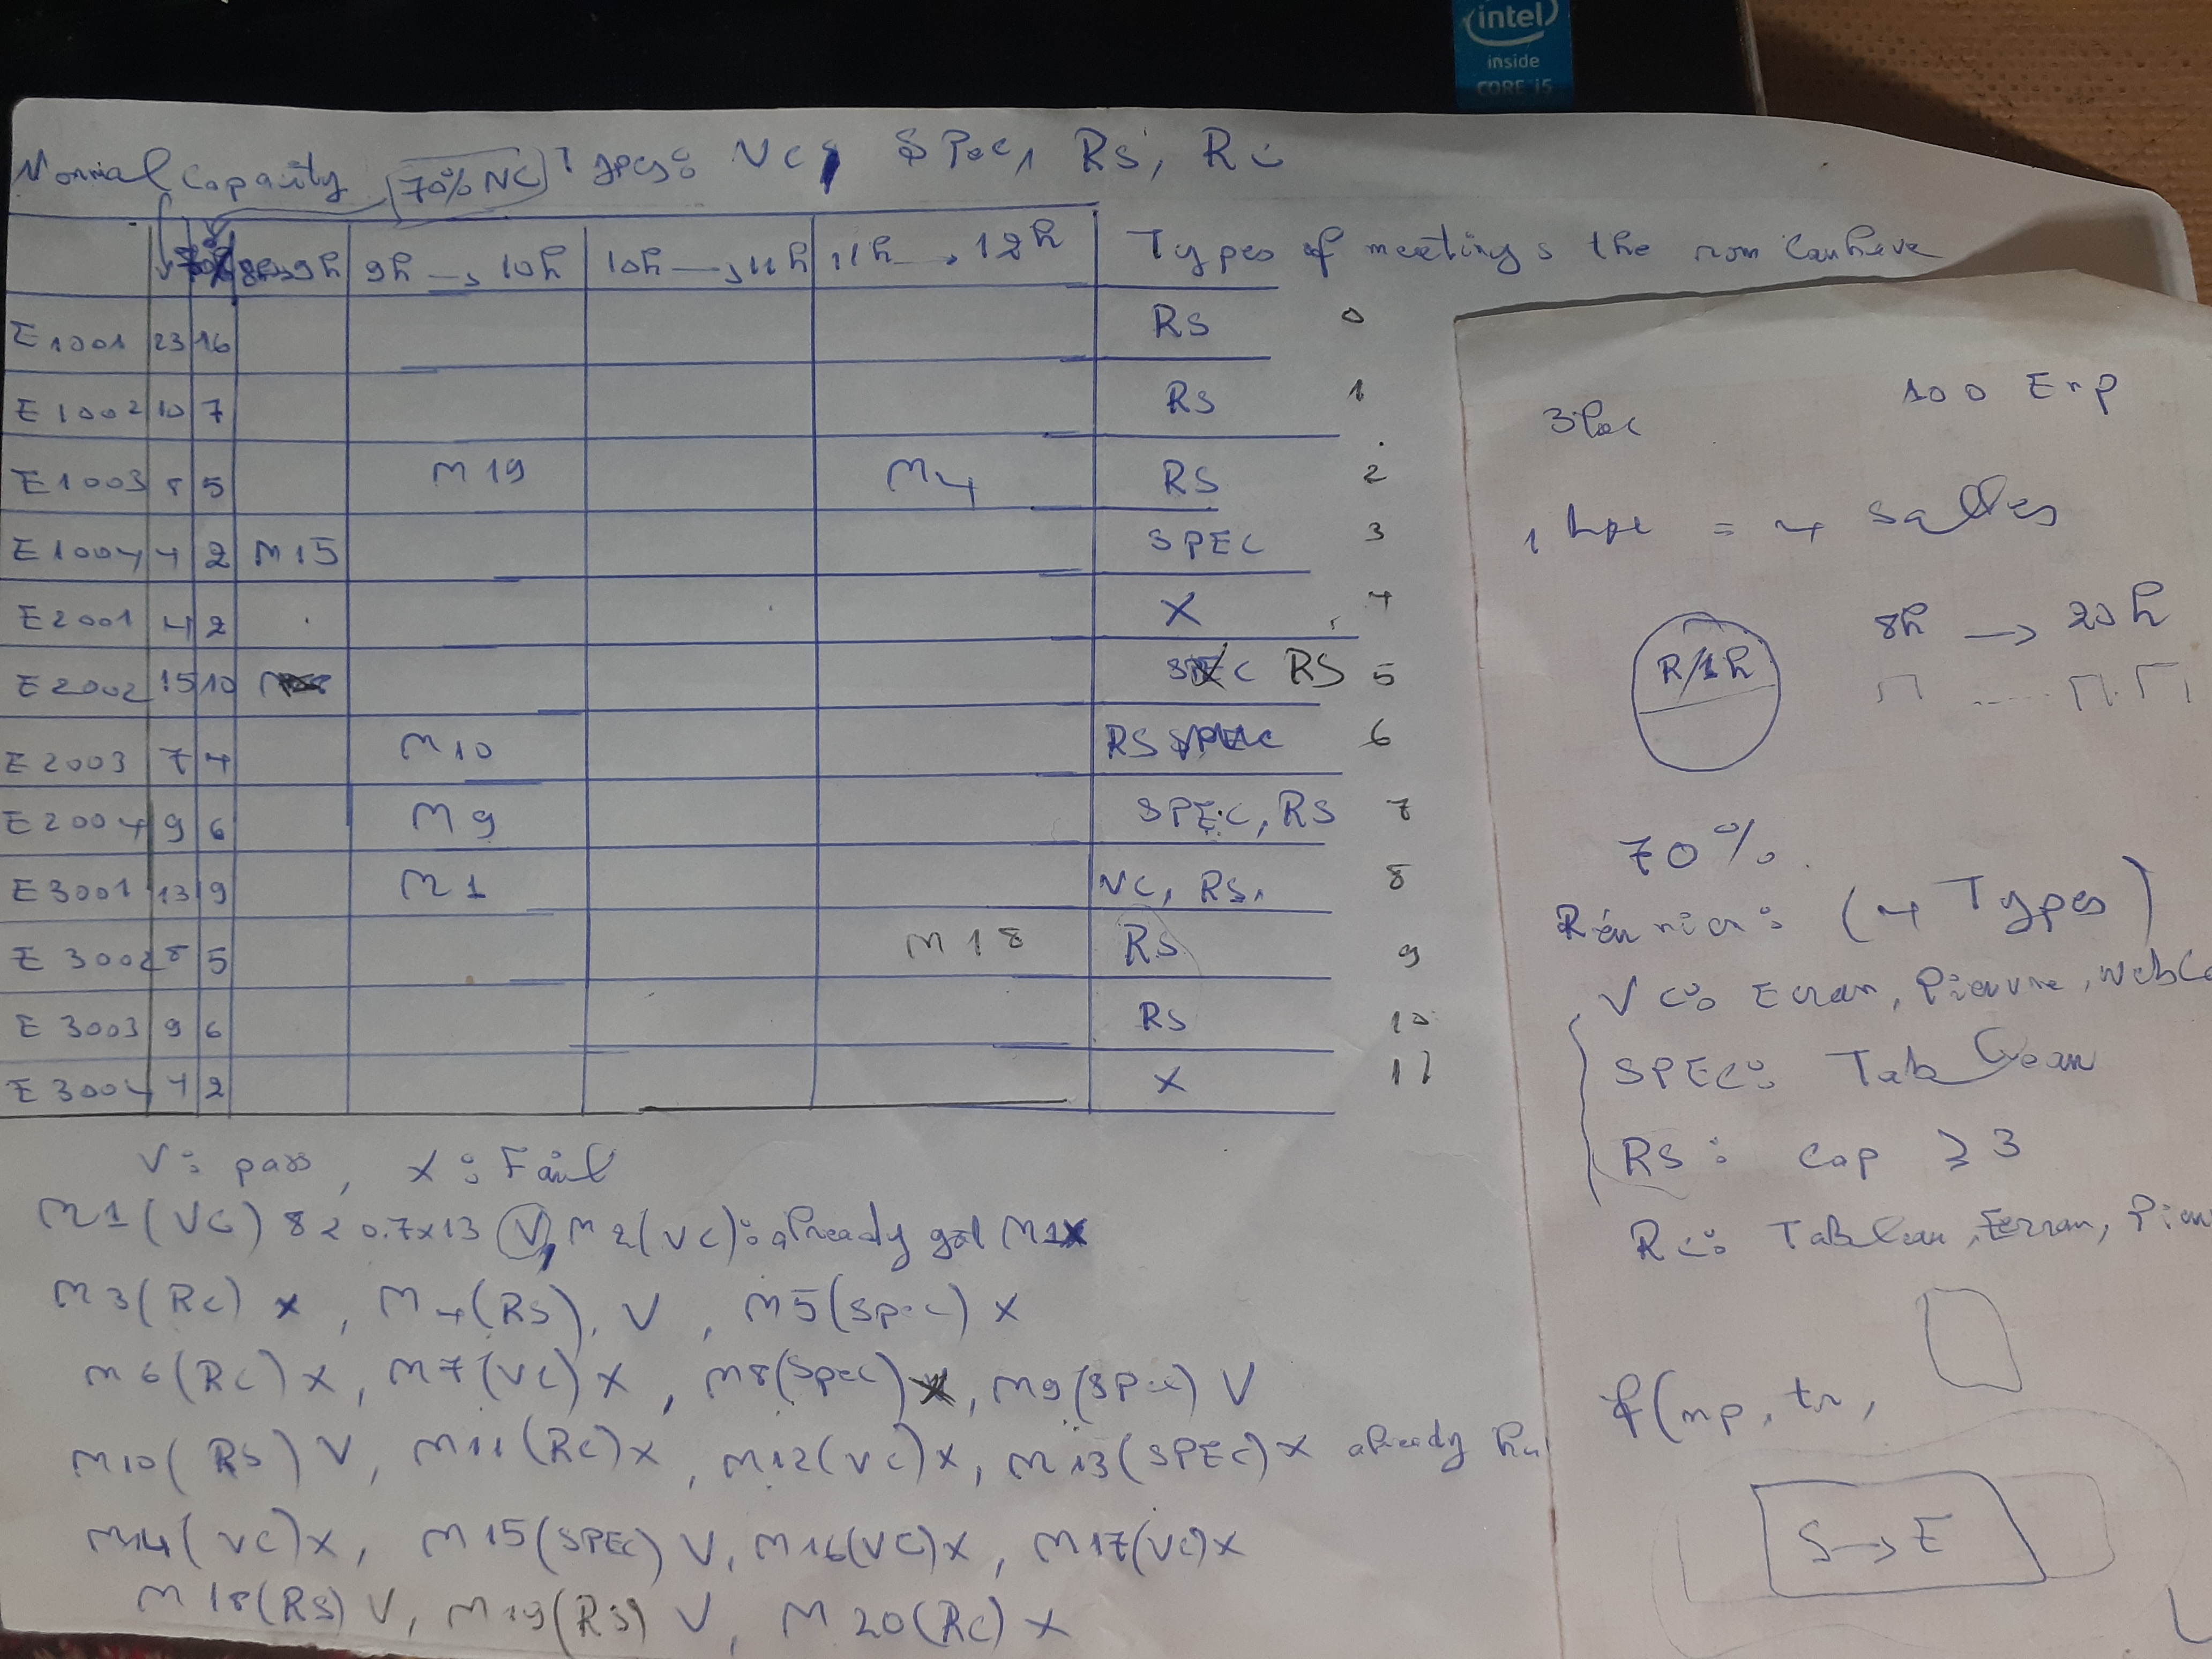 Nominal Capacity 70% NC, Types: VC, SPEC, RS, RC
8h→9h 9h → 10h 10h → 11h 11h → 12h Types of meetings the room can have
E1001 23 16 RS 0
E1002 10 7 RS 1
E1003 8 5 M19 M4 RS 2
E1004 4 2 M15 SPEC 3
E2001 4 2 X 4
E2002 15 10 RS 5
E2003 7 4 M10 RS 6
E2004 9 6 M9 SPEC, RS 7
E3001 13 9 M1 VC, RS. 8
E3002 8 5 M18 RS 9
E3003 9 6 RS 10
E3004 4 2 X 11
V: pass, X: Fail
M1 (VC) 8 ≥ 0.7x13 V, M2 (VC): already got M1X
M3(RC) X, M4(RS), V, M5(SPEC) X
M6(RC) X, M7(VC) X, M8(SPEC) X, M9(SPEC) V
M10(RS) V, M11(RC) X, M12(VC) X, M13(SPEC) X already
M14(VC) X, M15(SPEC) V, M16(VC) X, M17(VC) X
M18(RS) V, M19(RS) V, M20(RC) X
intel
inside
CORE i5
100 Emp
1 = 4 salles
8h → 20h
R/1h
70%
Réunion: (4 Types)
VC: Ecran, Pieuvre, Webc
SPEC: Tableau
RS: Cap ≥ 3
RC: Tableau, Ecran, Pieu
S→E